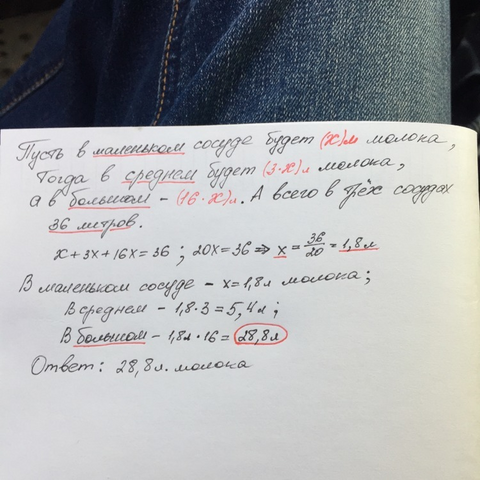 Пусть в маленьком сосуде будет (x)л молока,
Тогда в среднем будет (3·x)л молока,
а в большом - (16·x)л. А всего в трёх сосудах
36 литров.
x+3x+16x=36 ; 20x=36 ⇒ x = 36/20 = 1,8 л
В маленьком сосуде - x=1,8 л молока;
В среднем - 1,8·3=5,4 л;
В большом - 1,8 л·16= 28,8 л
Ответ: 28,8 л. молока